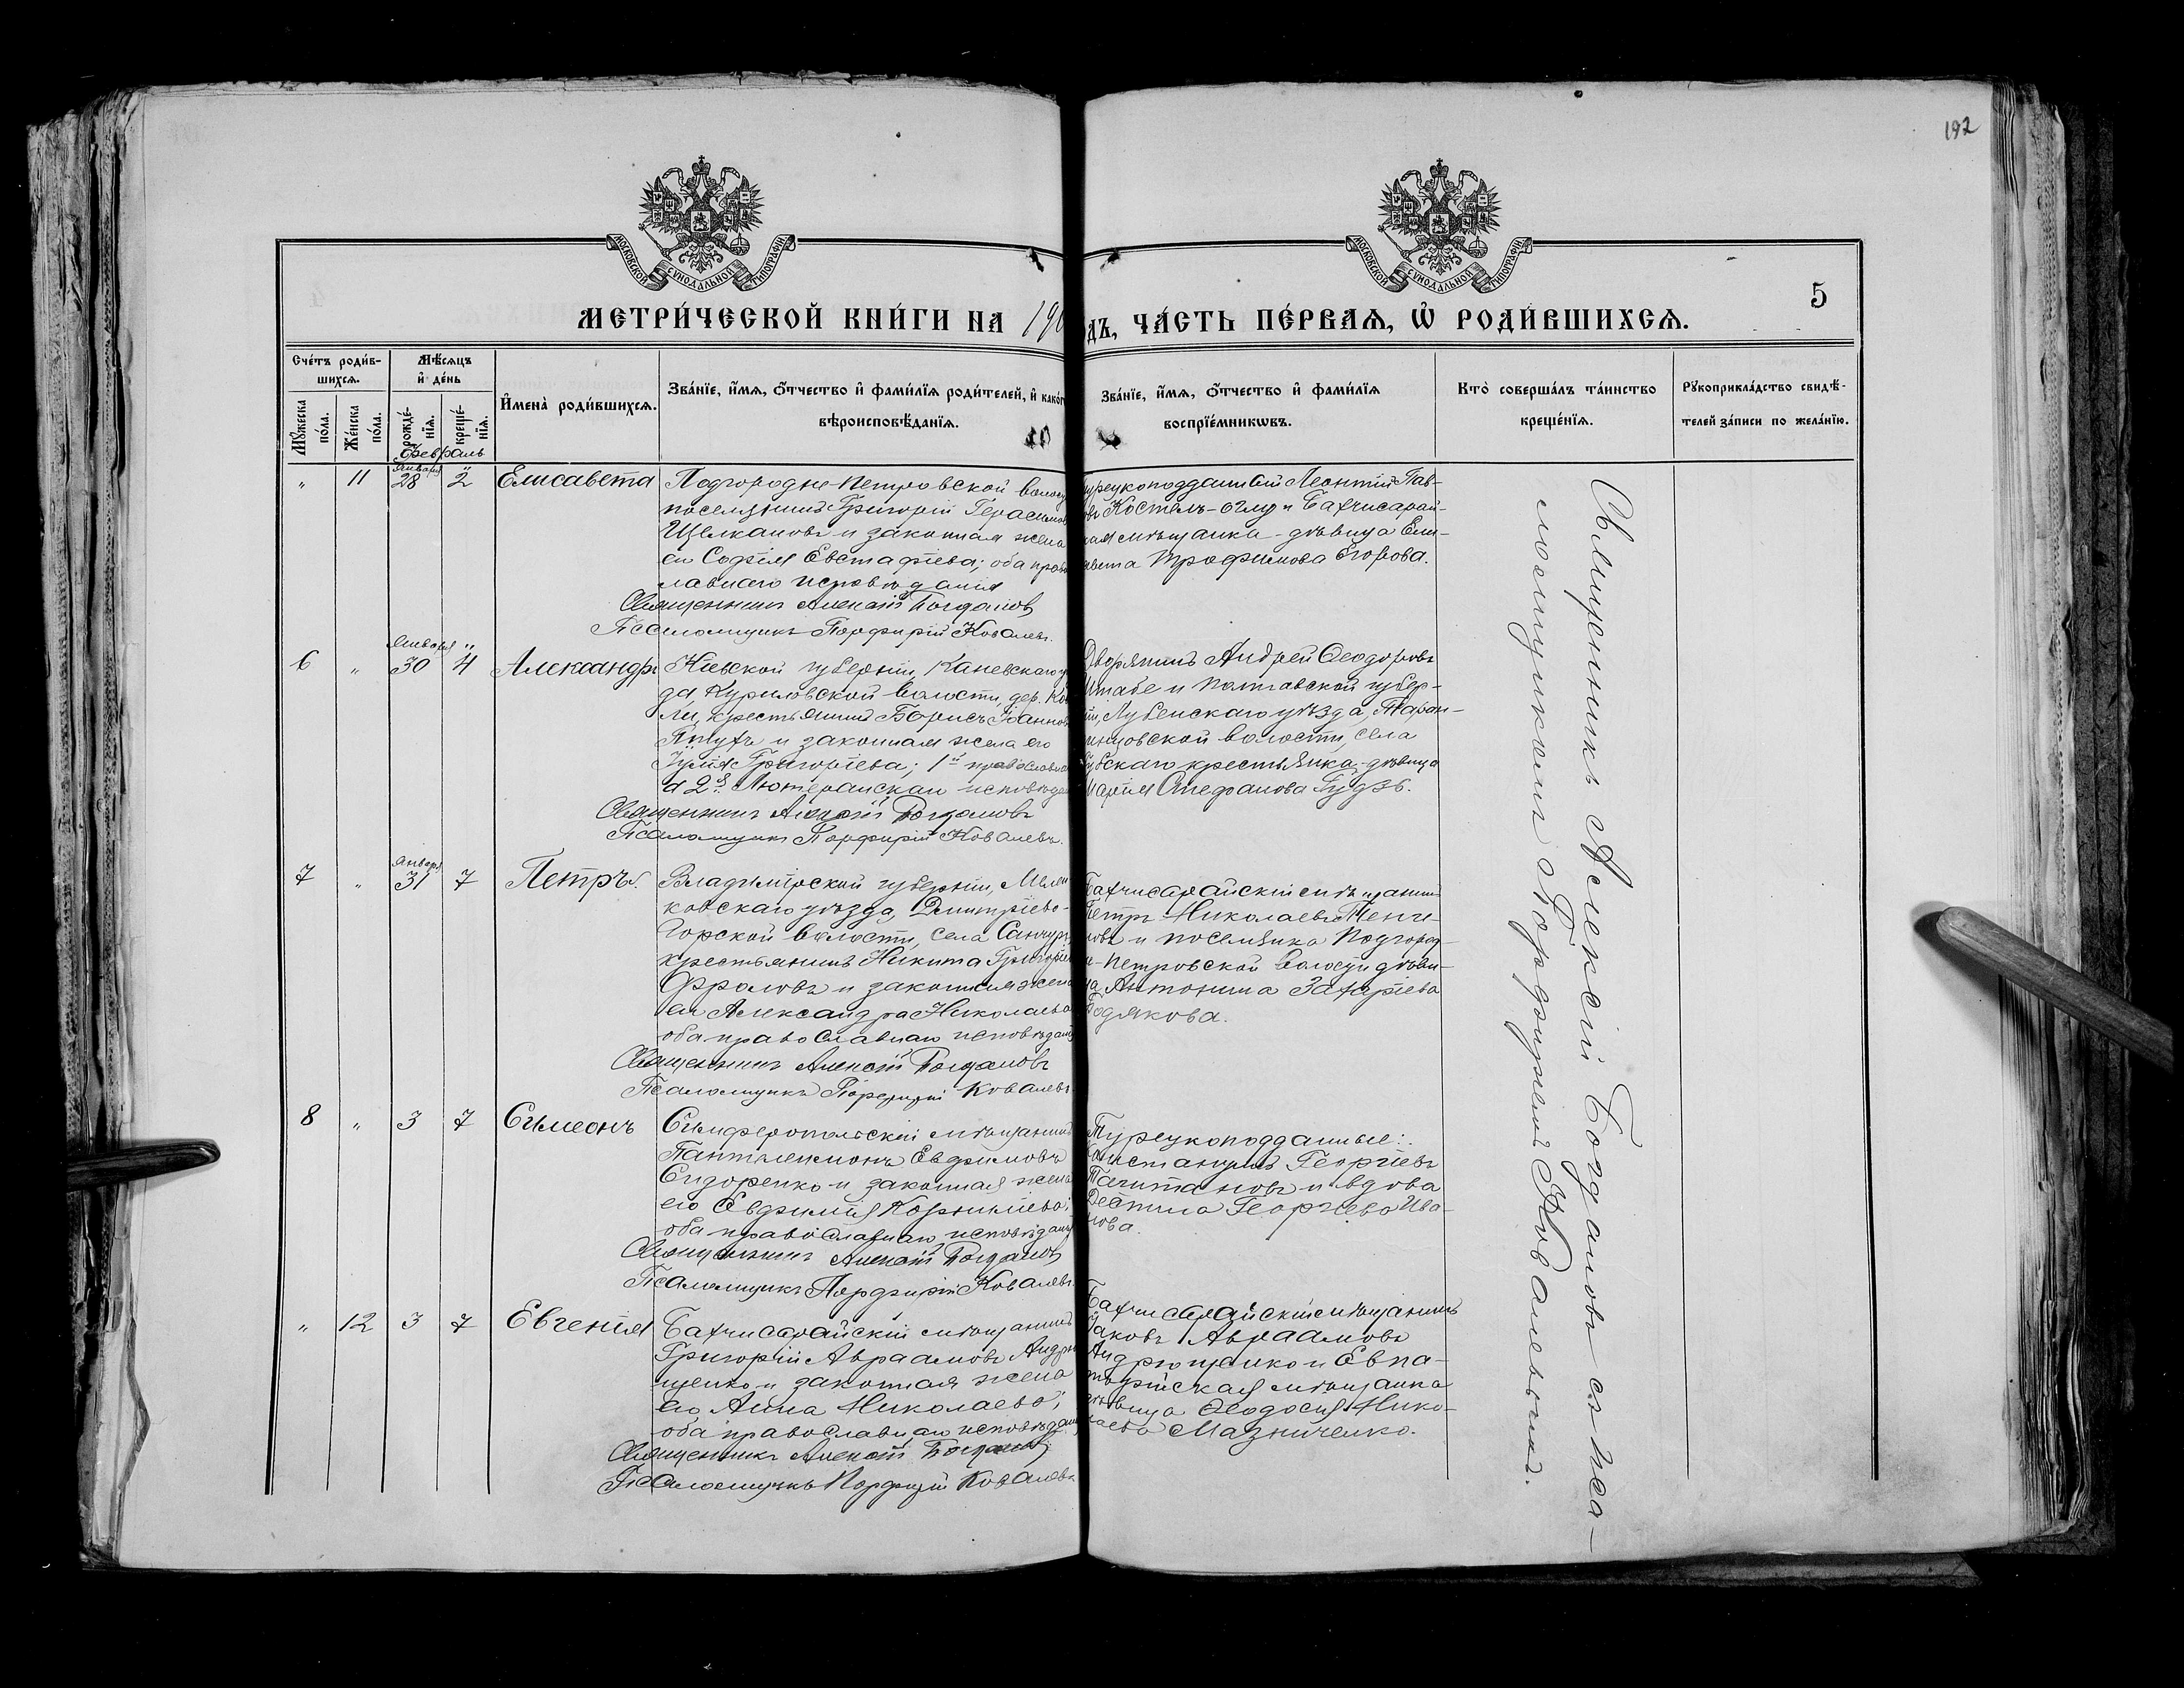 192
МОСКОВСКОЙ СУНОДАЛЬНОЙ ТИПОГРАФІИ
МОСКОВСКОЙ СУНОДАЛЬНОЙ ТИПОГРАФІИ
5
МЕТРИ́ЧЕСКОЙ КНИ́ГИ НА 190
ДЪ, ЧА́СТЬ ПЕ́РВАЯ, Ѡ҆ РОДИ́ВШИХСЯ.
Сче́тъ роди́в-
шихся.
Мѣ́сяцъ
и҆ де́нь
Мꙋ́жеска по́ла.
Же́нска по́ла.
рожде́-
нїя.
креще́-
нїя.
И҆мена̀ роди́вшихся.
Зва́нїе, и҆́мя, ѻ҆́тчество и҆ фами́лїя роди́телей, и҆ како́г
вѣроисповѣ́данїя.
Зва́нїе, и҆́мя, ѻ҆́тчество и҆ фами́лїя
воспрїе́мникѡвъ.
Кто̀ соверша́лъ та́инство
креще́нїя.
Рꙋкоприкла́дство свидѣ́-
телей за́писи по жела́нїю.
Февраль
" 11 Января 28 2 Елисавета
Подгородне-Петровской волос
поселянинъ Григорій Герасимов
Щелкановъ и законная жена
его Софія Евстафіева; оба право
славнаго исповѣданія
Священникъ Алексій Богдановъ
Псаломщикъ Порфирій Ковалевъ.
урецкоподданный Леонтій Пав-
овъ Костель-оглу и Бахчисарай-
кая мѣщанка-дѣвица Ели-
авета Трофимова Егорова.
6 " Января 30 4 Александръ
Кіевской губерніи, Каневскаго у
да, Куриловской волости, дер. Ков
ли, крестьянинъ Борисъ Іоаннов
и законная жена его
Юлія Григоріева; 1й православна
а 2я Лютеранскаго исповѣдан
Священникъ Алексій Богдановъ
Псаломщикъ Порфирій Ковалевъ.
Дворянинъ Андрей Ѳеодоровъ
Штабе и Полтавской губер-
іи, Лубенскаго уѣзда, Таран-
инцовской волости, села
крестьянка-дѣвица
Марія Стефанова Гудзь.
7 " Января 31 7 Петръ.
Владимірской губерніи, Мелен
ковскаго уѣзда, Димитріево-
Горской волости, села Санчур
крестьянинъ Никита Григорі
Фроловъ и законная жена
его Александра Николаева
оба православнаго исповѣдан
Священникъ Алексій Богдановъ
Псаломщикъ Порфирій Ковалевъ
Бахчисарайскій мѣщанинъ
Петръ Николаевъ
новъ и поселянка Подгород-
е-Петровской волости дѣви-
ца Антонина Захаріева
Бодякова.
8 " 3 7 Симеонъ
Симферопольскій мѣщанинъ
Пантелеимонъ Евфимовъ
Сидоренко и законная жена
его Евфимія Корниліева;
оба православнаго исповѣдан
Священникъ Алексій Богдановъ
Псаломщикъ Порфирій Ковалевъ.
Турецкоподданные:
Константинъ Георгіевъ
и вдова
Деспина Георгіева Ива-
нова.
" 12 3 7 Евгенія
Бахчисарайскій мѣщанинъ
Григорій Авраамовъ Андрю
щенко и законная жена
его Анна Николаева;
оба православнаго исповѣдан
Священникъ Алексій Богдановъ
Псаломщикъ Порфирій Ковалевъ
Бахчисарайскій мѣщанинъ
Іаковъ Авраамовъ
Андрющенко и Евпа-
торійская мѣщанка
дѣвица Ѳеодосія Нико-
лаева Мазниченко.
Священникъ Алексій Богдановъ съ пса-
ломщикомъ Порфиріемъ Ковалевымъ.